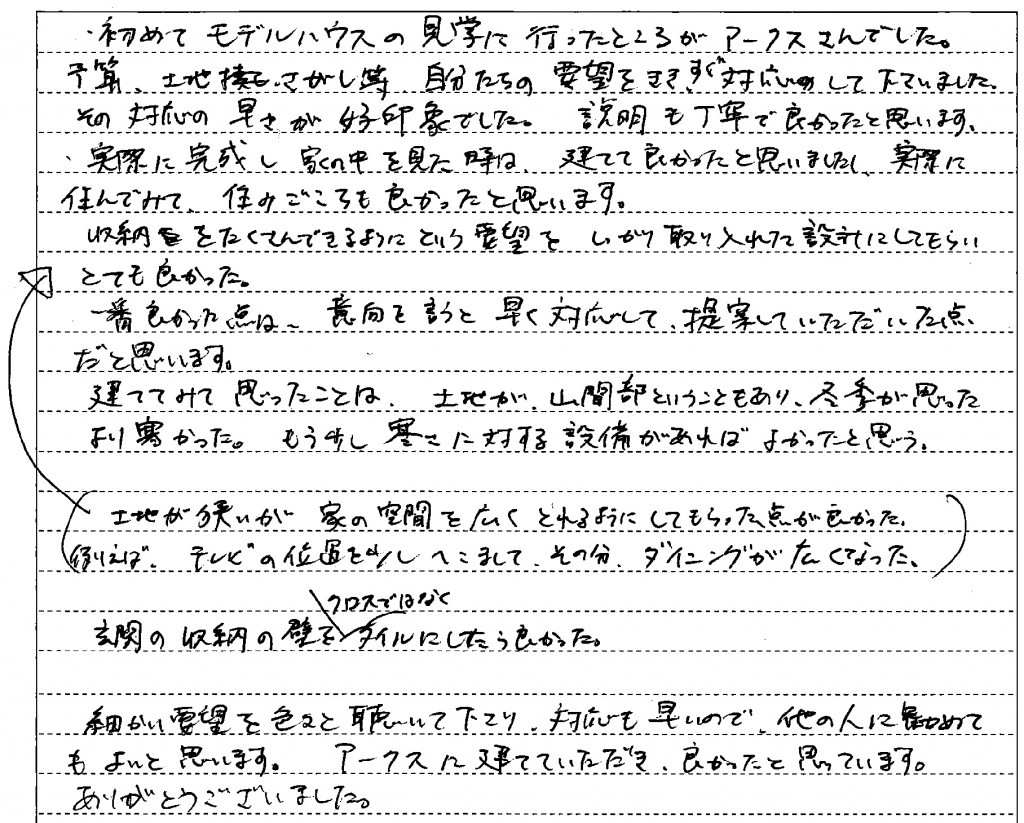 ・初めて モデルハウスの 見学に 行ったところが アークスさんでした。
予算、土地探し さがし等 自分たちの 要望をきき、すぐ対応して 下ていました。
その 対応の 早さが 好印象でした。 説明も丁寧で良かったと思います。
・実際に完成し 家の中を見た時は、建てて良かったと思いましたし、実際に
住んでみて、住みごこちも良かったと思います。
収納をたくさんできるように という要望を しっかり取り入れた設計にしてもらい
とても良かった。
一番良かった点は、意向を言うと早く対応して、提案していただいた点
だと思います。
建ててみて思ったことは、土地が、山間部ということもあり、冬季が思った
より寒かった。 もう少し寒さに対する設備があればよかったと思う。
(土地が狭いが 家の空間を広くとれるようにしてもらった点が良かった。
例えば、テレビの位置を少しへこまして、その分、ダイニングが広くなった。)
クロスではなく
玄関の収納の壁をタイルにしたら良かった。
細かい要望を色々と聴いて下さり、対応も早いので、他の人に勧めて
もよいと思います。 アークスに建てていただき、良かったと思っています。
ありがとうございました。